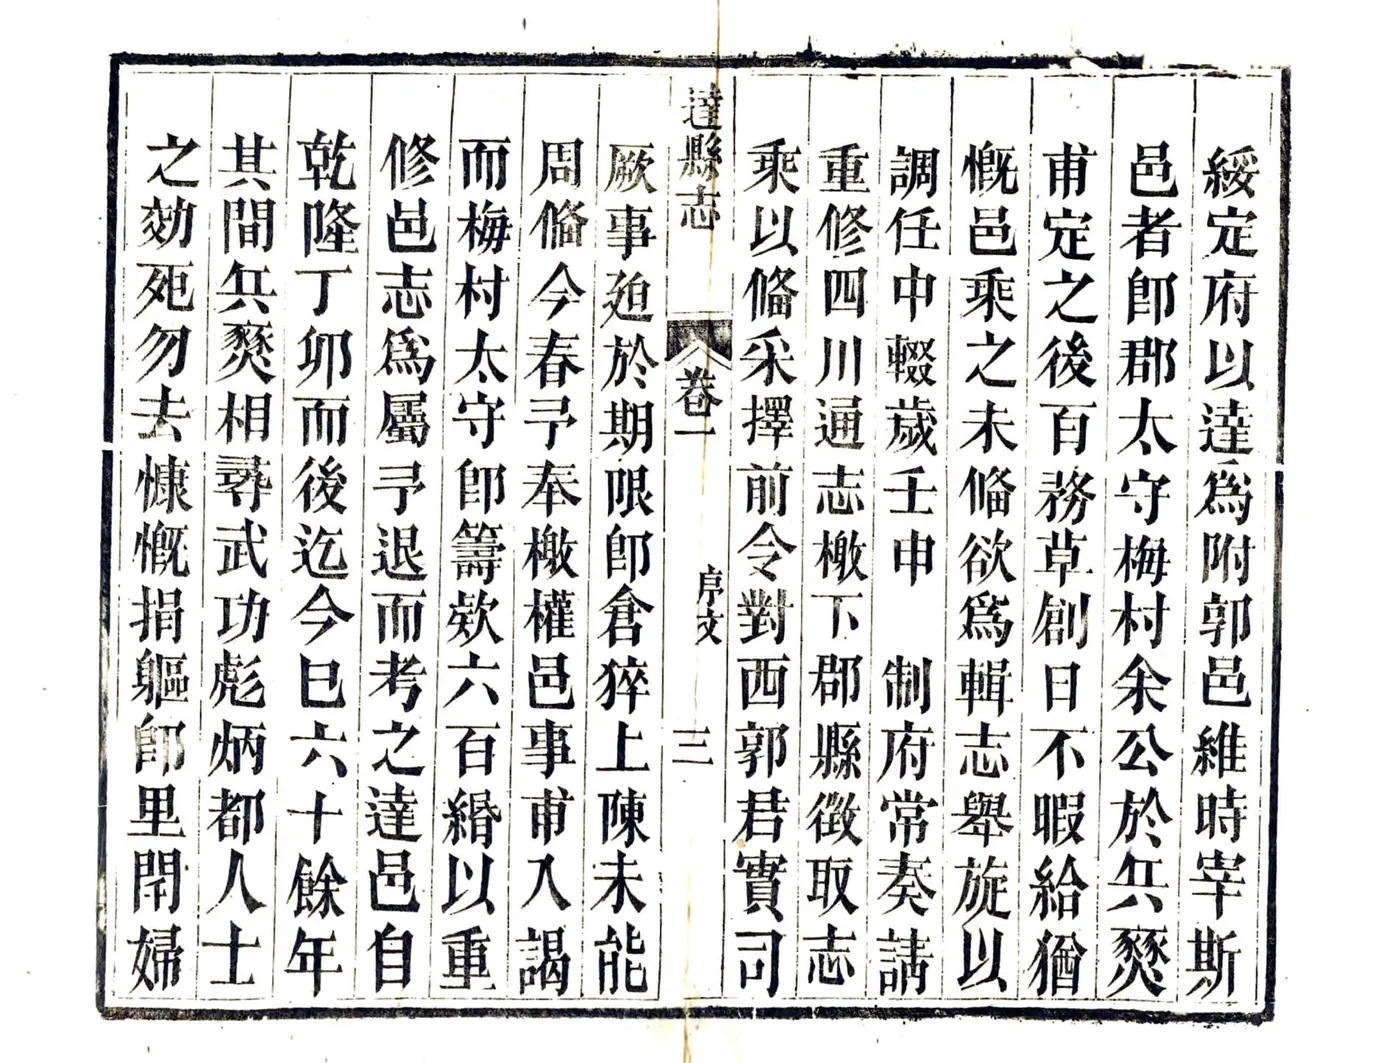 綏定府以達爲附郭邑維時宰斯
邑者卽郡太守梅村余公於兵燹
甫定之後百務草創日不暇給猶
慨邑乘之未偹欲爲輯志舉旋以
調任中輟歲壬申　制府常奏請
重修四川通志檄下郡縣徵取志
乘以偹采擇前令對西郭君實司
達縣志
卷一
序文
三
厥事廹於期限卽倉猝上陳未能
周偹今春予奉檄權邑事甫入謁
而梅村太守卽籌欵六百緡以重
修邑志爲屬予退而考之達邑自
乾隆丁夘而後迄今巳六十餘年
其間兵燹相尋武功彪炳都人士
之効死勿去慷慨捐軀卽里閈婦